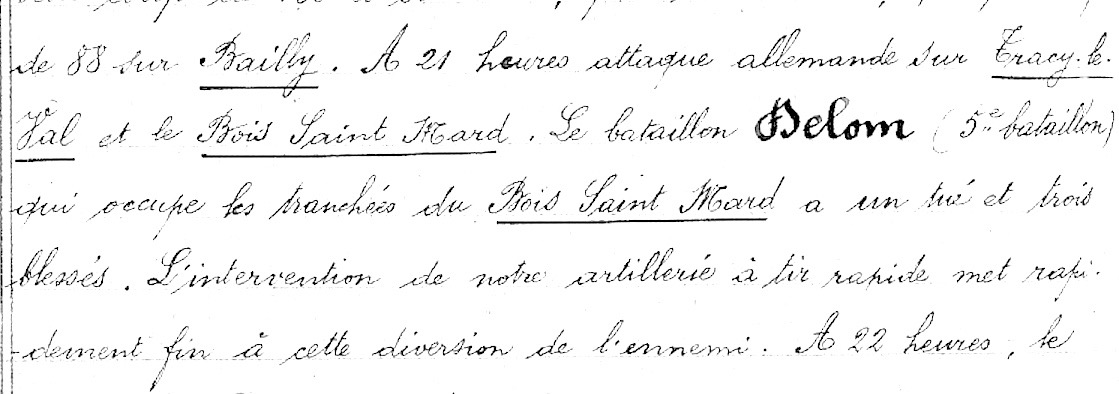 de 88 sur Bailly. A 21 heures attaque allemande sur Tracy-le-
Val et le Bois Saint Mard. Le bataillon Delom (5e bataillon)
qui occupe les tranchées du Bois Saint Mard a un tué et trois
blessés. L'intervention de notre artillerie à tir rapide met rapi-
-dement fin à cette diversion de l'ennemi. A 22 heures, le